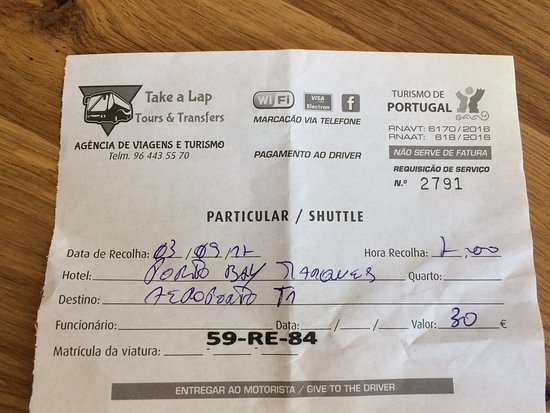 Take a Lap
Tours & Transfers
AGÊNCIA DE VIAGENS E TURISMO
Telm. 96 443 55 70
WiFi VISA Electron f
MARCAÇÃO VIA TELEFONE
PAGAMENTO AO DRIVER
TURISMO DE
PORTUGAL
RNAVT: 6170/2016
RNAAT: 618/2016
NÃO SERVE DE FATURA
REQUISIÇÃO DE SERVIÇO
N.º 2791
PARTICULAR / SHUTTLE
Data de Recolha: 03/09/17 Hora Recolha:
Hotel: PORTO BAY Quarto:
Destino: AEROPORTO T1
Funcionário: Data: / / Valor: 30 €
59-RE-84
Matrícula da viatura: - -
ENTREGAR AO MOTORISTA / GIVE TO THE DRIVER